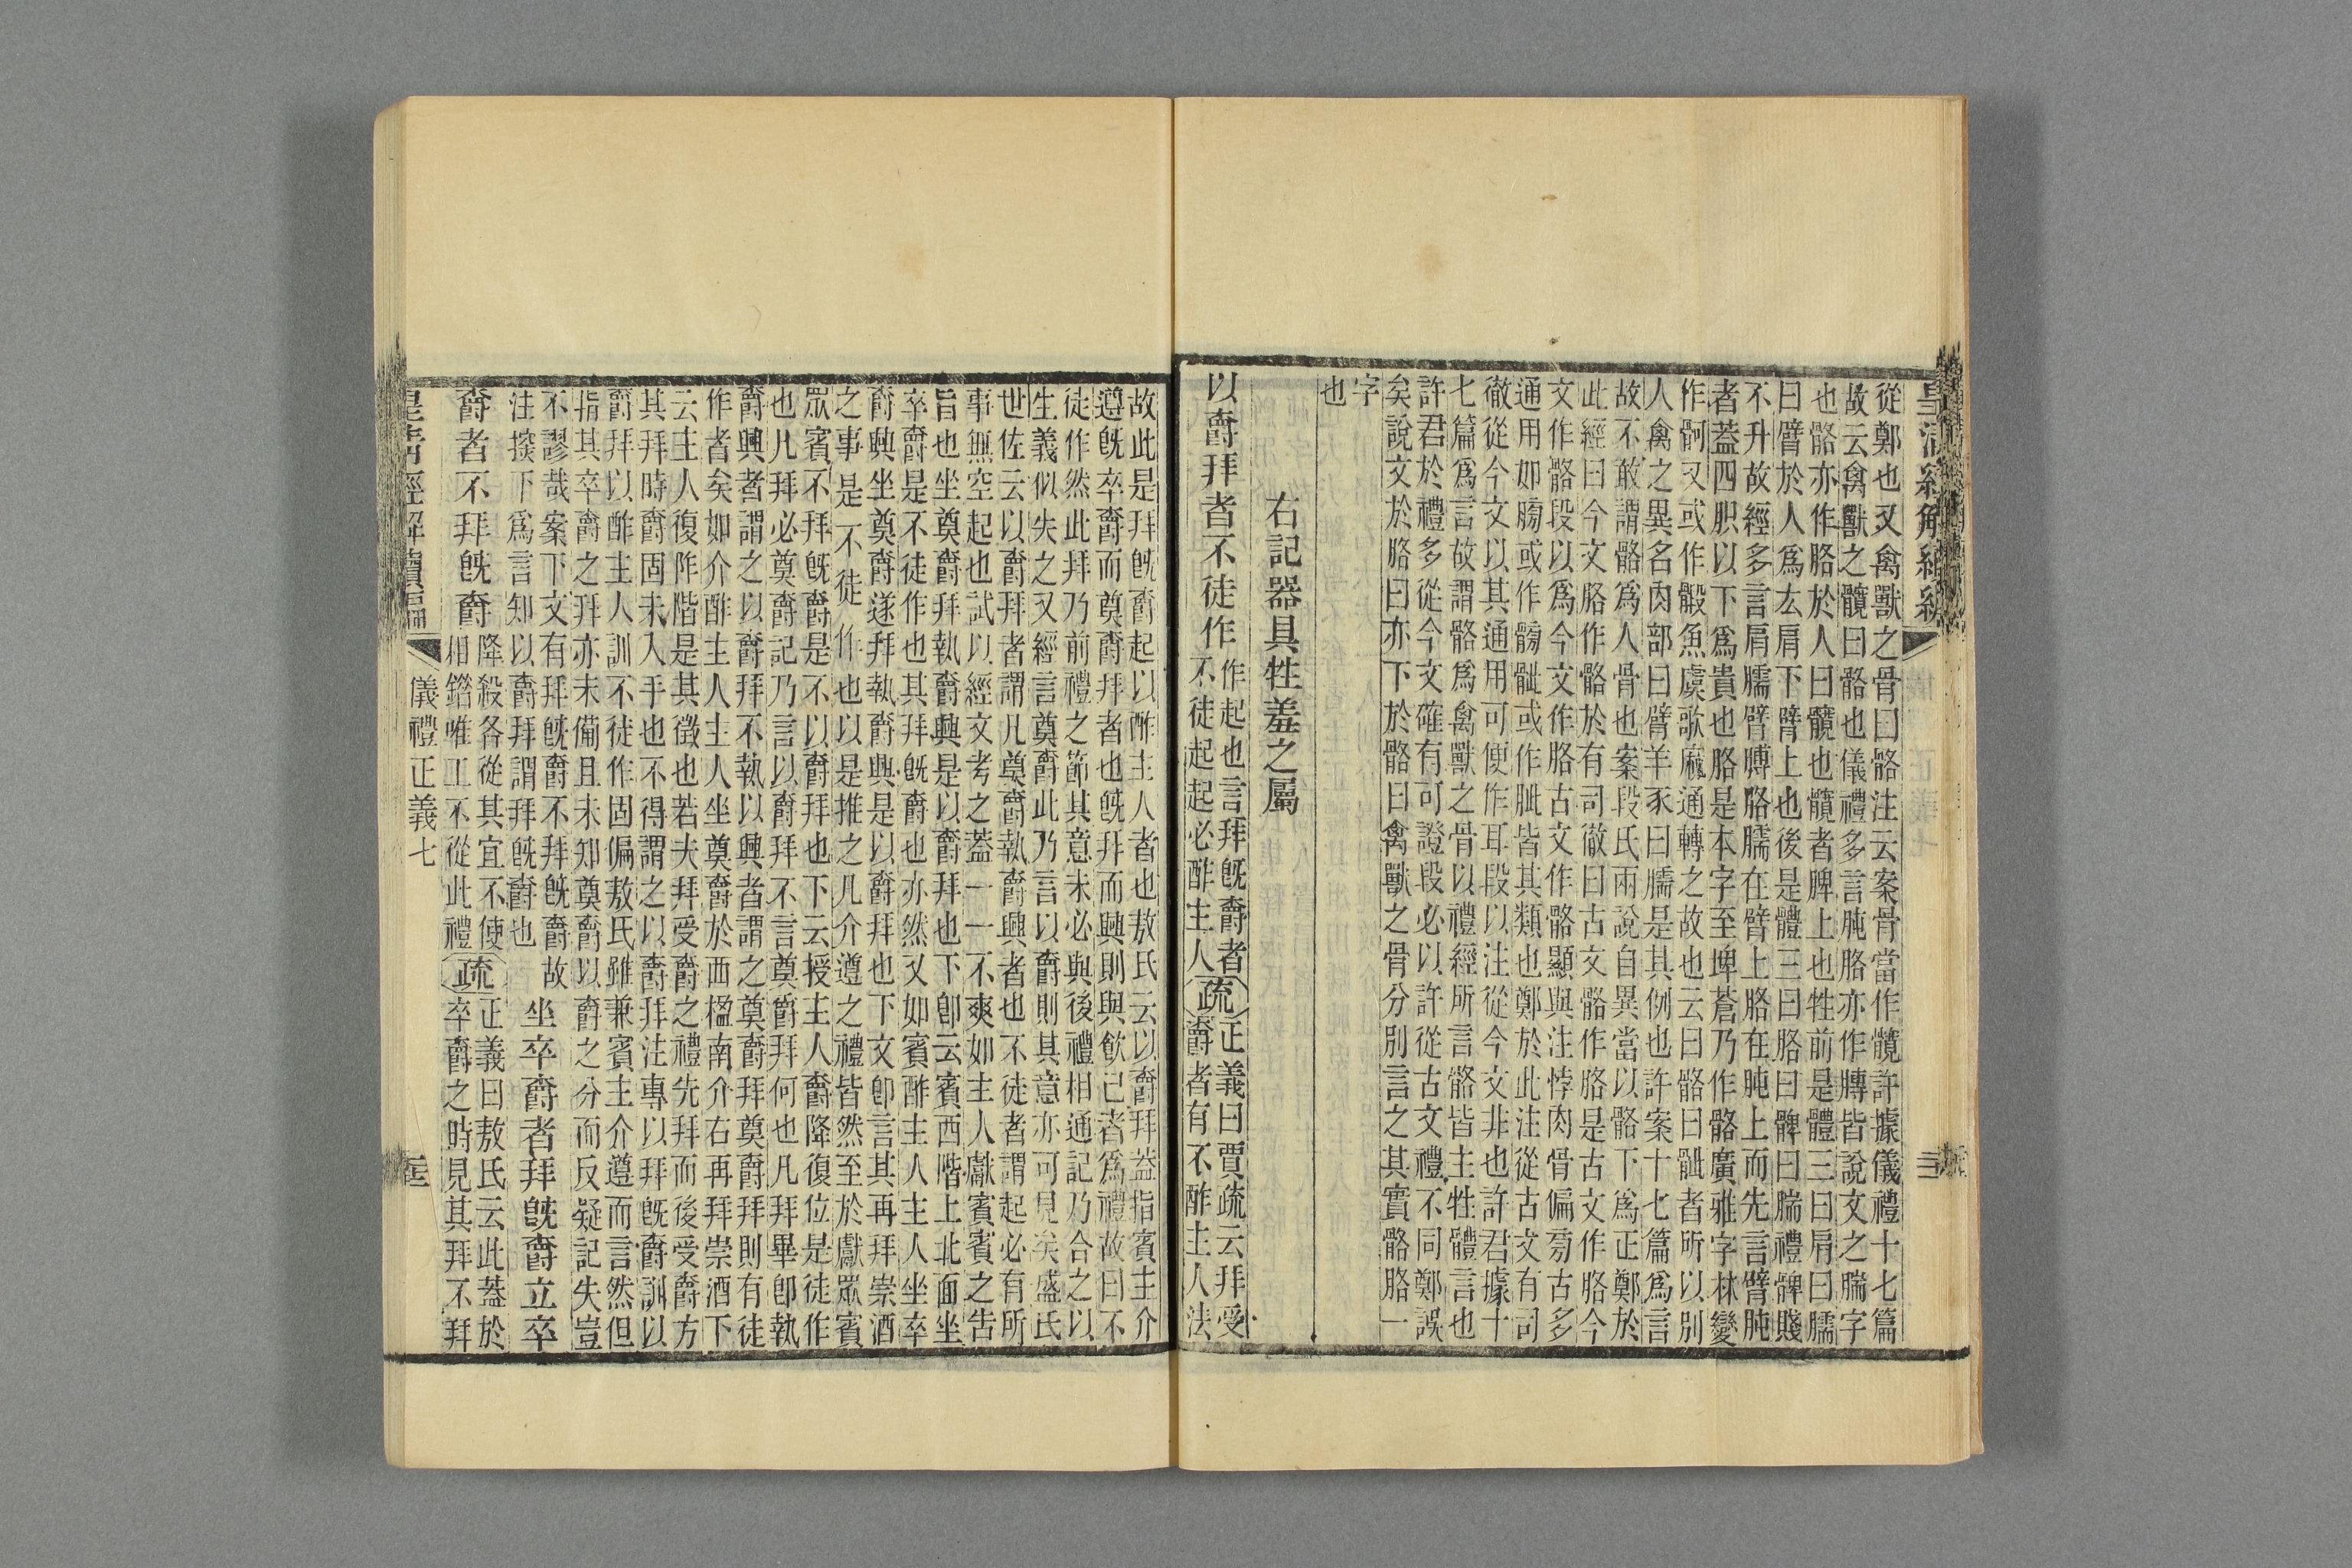 皇清經解續編
從鄭也又禽獸之骨曰骼注云案骨當作髖許據儀禮十七篇
故云禽獸之髖曰骼也儀禮多言肫胳亦作膞皆說文之腨字
也骼亦作胳於人曰髖也髖者脾上也牲前是體三曰肩曰臑
曰臂於人爲厷肩下臂上也後是體三曰胳曰髀曰腨禮髀賤
不升故經多言肩臑臂膊胳臑在臂上胳在肫上而先言臂肫
者蓋四胑以下爲貴也胳是本字至埤蒼乃作骼廣雅字林變
作䯊又或作骰魚虞歌麻通轉之故也云曰骼曰骴者所以別
人禽之異名肉部曰臂羊豕曰臑是其例也許案十七篇爲言
故不敢謂骼爲人骨也案段氏兩說自異當以骼下爲正鄭於
此經曰今文胳作骼於有司徹曰古文骼作胳是古文作胳今
文作骼段以爲今文作胳古文作骼顯與注悖肉骨偏旁古多
通用如膀或作髈骴或作胔皆其類也鄭於此注從古文有司
徹從今文以其通用可便作耳段以注從今文非也許君據十
七篇爲言故謂骼爲禽獸之骨以禮經所言骼皆主牲體言也
許君於禮多從今文確有可證段必以許從古文禮不同鄭誤
矣說文於胳曰亦下於骼曰禽獸之骨分別言之其實骼胳一
字
也
右記器具牲羞之屬
以爵拜者不徒作
作起也言拜旣爵者
不徒起起必酢主人
疏
正義曰賈疏云拜受
爵者有不酢主人法
故此是拜旣爵起以酢主人者也敖氏云以爵拜蓋指賓主介
遵旣卒爵而奠爵拜者也旣拜而興則與飮己者爲禮故曰不
徒作然此拜乃前禮之節其意未必與後禮相通記乃合之以
生義似失之又經言奠爵此乃言以爵則其意亦可見矣盛氏
世佐云以爵拜者謂凡奠爵執爵興者也不徒者謂起必有所
事無空起也試以經文考之蓋一一不爽如主人獻賓賓之告
旨也坐奠爵拜執爵興是以爵拜也下卽云賓西階上北面坐
卒爵是不徒作也其拜旣爵也亦然又如賓酢主人主人坐卒
爵興坐奠爵遂拜執爵興是以爵拜也下文卽言其再拜崇酒
之事是不徒作也以是推之凡介遵之禮皆然至於獻眾賓
眾賓不拜旣爵是不以爵拜也下云授主人爵降復位是徒作
也凡拜必奠爵記乃言以爵拜不言奠爵拜何也凡拜畢卽執
爵興者謂之以爵拜不執以興者謂之奠爵拜奠爵拜則有徒
作者矣如介酢主人主人坐奠爵於西楹南介右再拜崇酒下
云主人復阼階是其徵也若夫拜受爵之禮先拜而後受爵方
其拜時爵固未入手也不得謂之以爵拜注專以拜旣爵訓以
爵拜以酢主人訓不徒作固偏敖氏雖兼賓主介遵而言然但
指其卒爵之拜亦未備且未知奠爵以爵之分而反疑記失豈
不謬哉案下文有拜旣爵不拜旣爵故
注揆下爲言知以爵拜謂拜旣爵也
坐卒爵者拜旣爵立卒
爵者不拜旣爵
降殺各從其宜不使
相錯唯工不從此禮
疏
正義曰敖氏云此蓋於
卒爵之時見其拜不拜
皇清經解續編
儀禮正義七